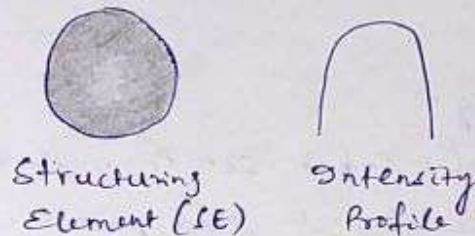 Structuring
Element (SE)
Intensity
Profile